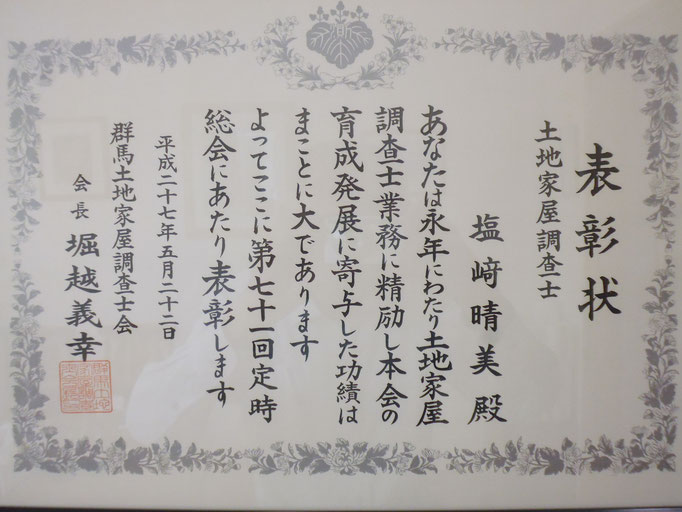 表彰状
土地家屋調査士
塩﨑晴美殿
あなたは永年にわたり土地家屋
調査士業務に精励し本会の
育成発展に寄与した功績は
まことに大であります
よってここに第七十一回定時
総会にあたり表彰します
平成二十七年五月二十二日
群馬土地家屋調査士会
会長 堀越義幸